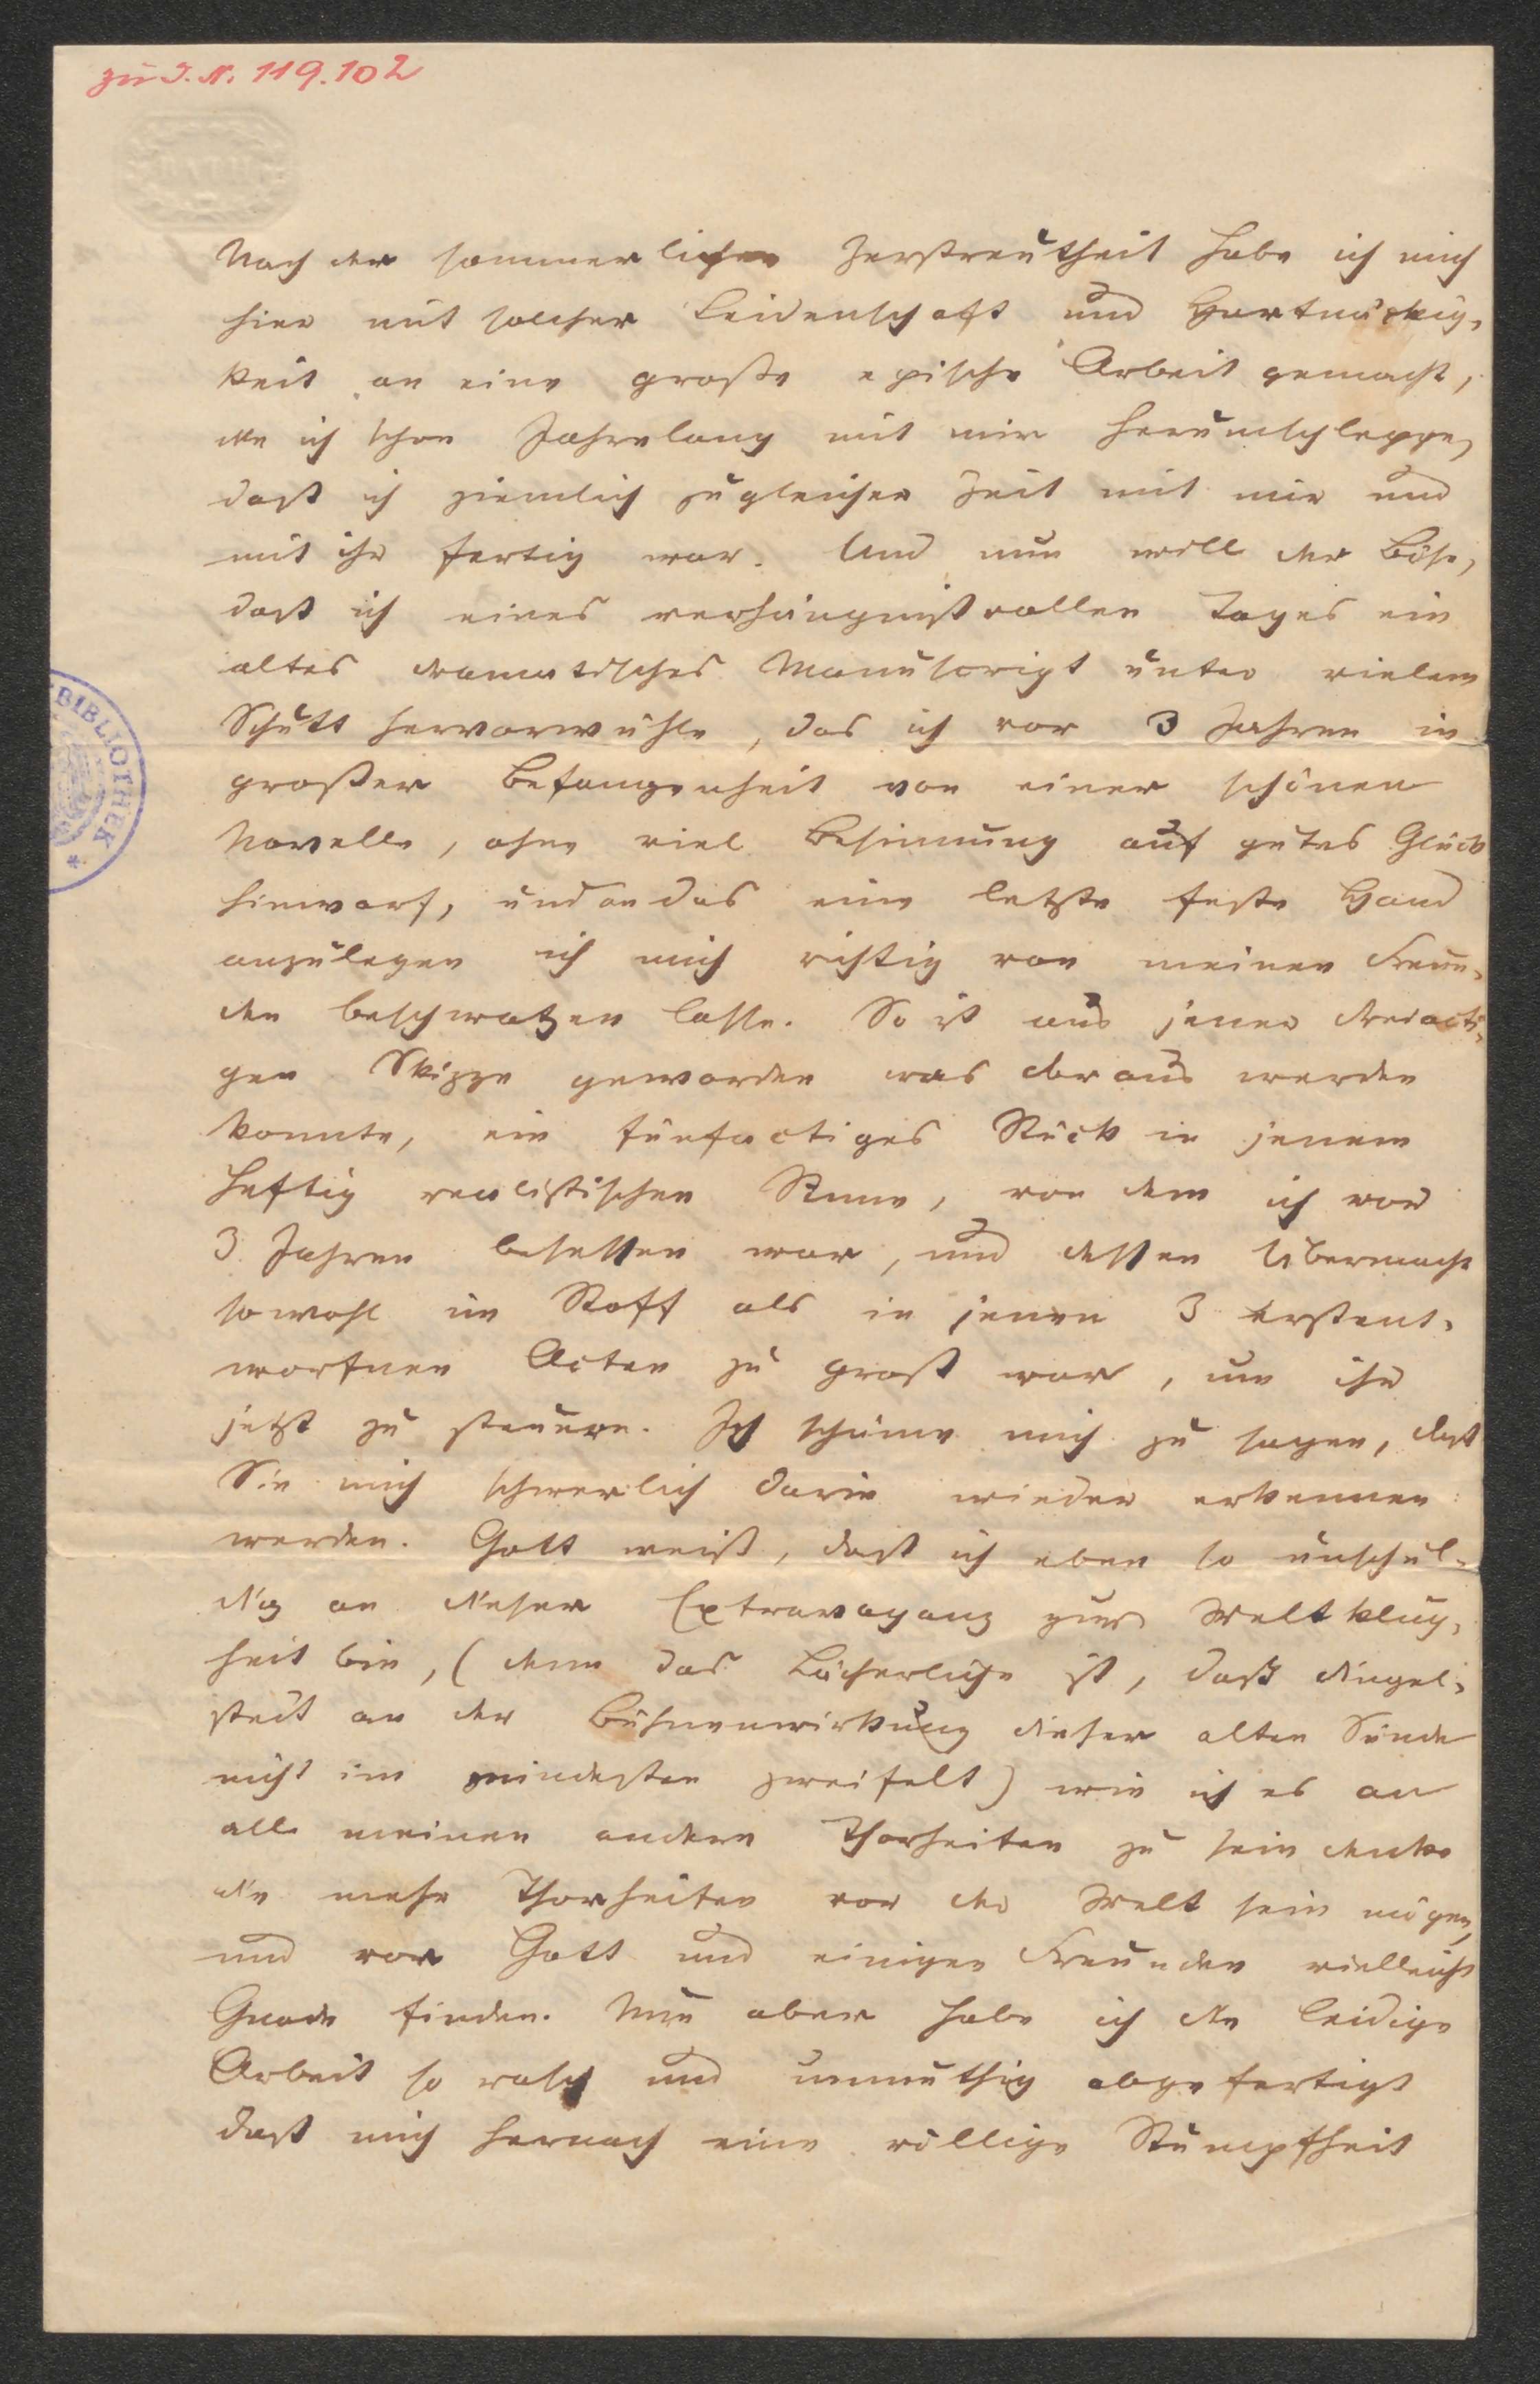 zu I. N. 119.102
Nach der sommerlichen Zerstreutheit habe ich mich
hier mit solcher Leidenschaft und Hartnäckig-
keit an eine große epische Arbeit gemacht,
die ich schon Jahrelang mit mir herumschleppe,
daß ich ziemlich zu gleicher Zeit mit mir und
mit ihr fertig war. Und nun will der Böse,
daß ich eines verhängnißvollen Tages ein
altes dramatisches Manuscript unter vielem
Schutt hervorwühle, das ich vor 3 Jahren in
großer Befangenheit von einer schönen
Novelle, ohne viel Besinnung auf gutes Glück
hinwarf, und an das eine letzte feste Hand
anzulegen ich mich richtig von meinen Freun-
den beschwatzen lasse. So ist aus jener dreiacti-
gen Skizze geworden was daraus werden
konnte, ein fünfactiges Stück in jenem
heftig realistischen Sinne, von dem ich vor
3 Jahren besessen war, und dessen Übermacht
sowohl im Stoff als in jenen 3 erstent-
worfnen Acten zu groß war, um ihr
jetzt zu steuern. Ich schäme mich zu sagen, daß
Sie mich schwerlich darin wieder erkennen
werden. Gott weiß, daß ich eben so unschul-
dig an dieser Extravaganz zur Weltklug-
heit bin, (denn das Lächerliche ist, daß Dingel-
stedt an der Bühnenwirkung dieser alten Sünde
nicht im mindesten zweifelt) wie ich es an
all meinen andern Thorheiten zu sein denke
die mehr Thorheiten vor der Welt sein mögen,
und vor Gott und einigen Freunden vielleicht
Gnade finden. Nun aber habe ich die leidige
Arbeit so rasch und unmuthig abgefertigt
daß mich hernach eine völlige Stumpfheit
BIBLIOTHEK *